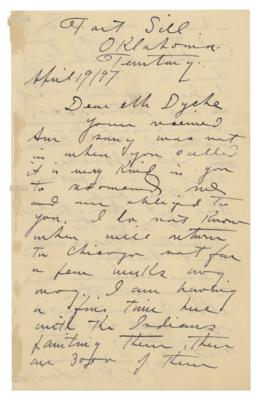 Fort Sill.
Oklahoma
Territory.
April 19/97
Dear Mr Dyche
Yours received
Am sorry was not
in when you called
it is very kind in you
to recomend me
and am obliged to
you. I do not know
when will return
to Chicago not for
a few weeks any
way. I am having
a fine time here
with the Indians
painting them, there
are 3000 of them